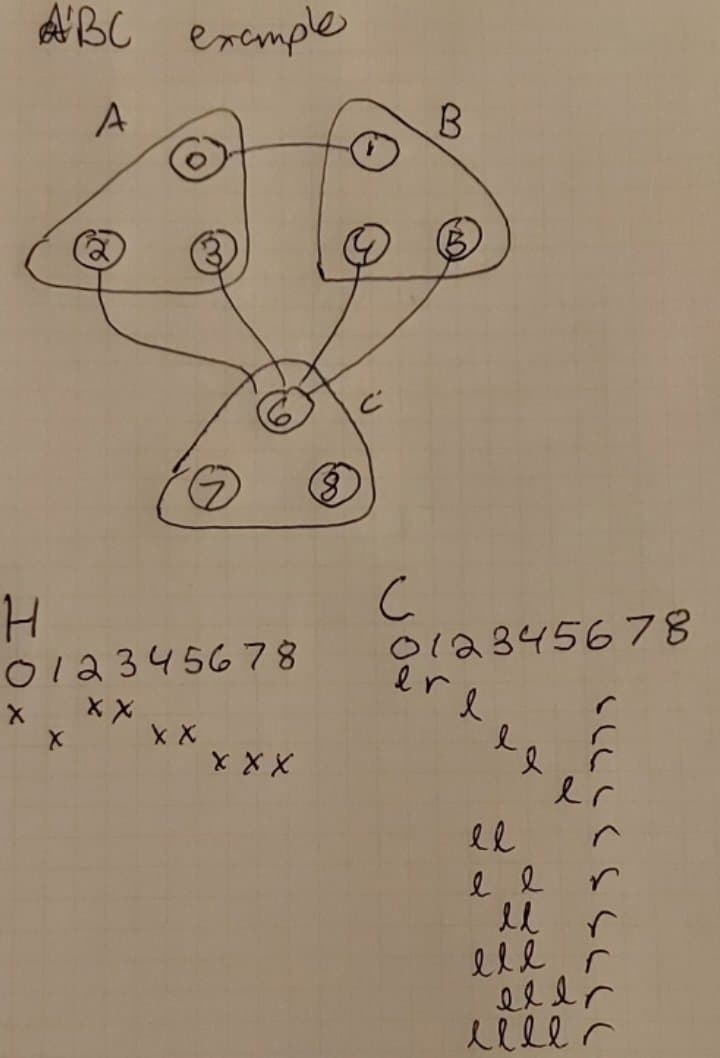 ABC example
A B
0 1
2 3 4 5
6 C
7 8
H
0 1 2 3 4 5 6 7 8
x x x
x x x
x x x
C
0 1 2 3 4 5 6 7 8
l r
l r
l r
l r
l r
ll r
l l r
ll r
lll r
lllr
llll r